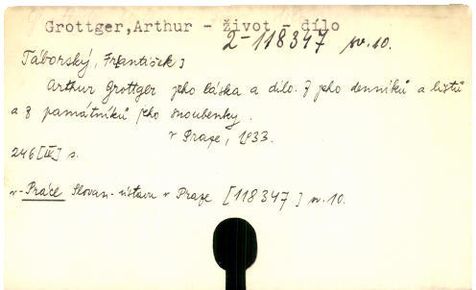 Grottger,Arthur - život - dílo
2-118347 sv.10.
Táborský, Fr[antišek]
Arthur Grottger jeho láska a dílo. Z jeho denníků a listů
a z památníků jeho snoubenky.
v Praze, 1933.
246 [IV] s.
v-Práce Slovan. ústavu v Praze [118347] sv. 10.